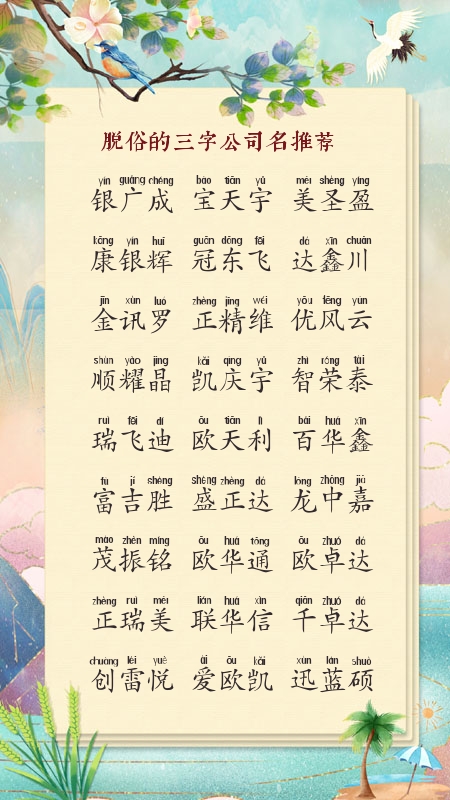 脱俗的三字公司名推荐
yín guǎng chéng bǎo tiān yǔ měi shèng yíng
银广成 宝天宇 美圣盈
kāng yín huī guān dōng fēi dá xīn chuān
康银辉 冠东飞 达鑫川
jīn xùn luó zhèng jīng wéi yōu fēng yún
金讯罗 正精维 优风云
shùn yào jīng kǎi qìng yǔ zhì róng tài
顺耀晶 凯庆宇 智荣泰
ruì fēi dí ōu tiān lì bǎi huá xīn
瑞飞迪 欧天利 百华鑫
fù jí shèng shèng zhèng dá lóng zhōng jiā
富吉胜 盛正达 龙中嘉
mào zhèn míng ōu huá tōng ōu zhuó dá
茂振铭 欧华通 欧卓达
zhèng ruì měi lián huá xìn qiān zhuó dá
正瑞美 联华信 千卓达
chuàng léi yuè ài ōu kǎi xùn lán shuò
创雷悦 爱欧凯 迅蓝硕